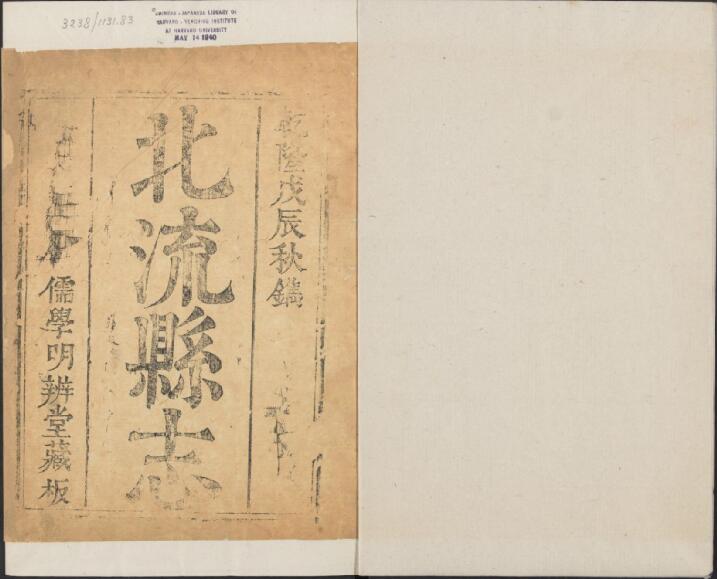 3238/1131.83
CHINESE-JAPANESE LIBRARY OF
HARVARD-YENCHING INSTITUTE
AT HARVARD UNIVERSITY
MAY 14 1940
乾隆戊辰秋鐫
北流縣志
儒學明辨堂藏板